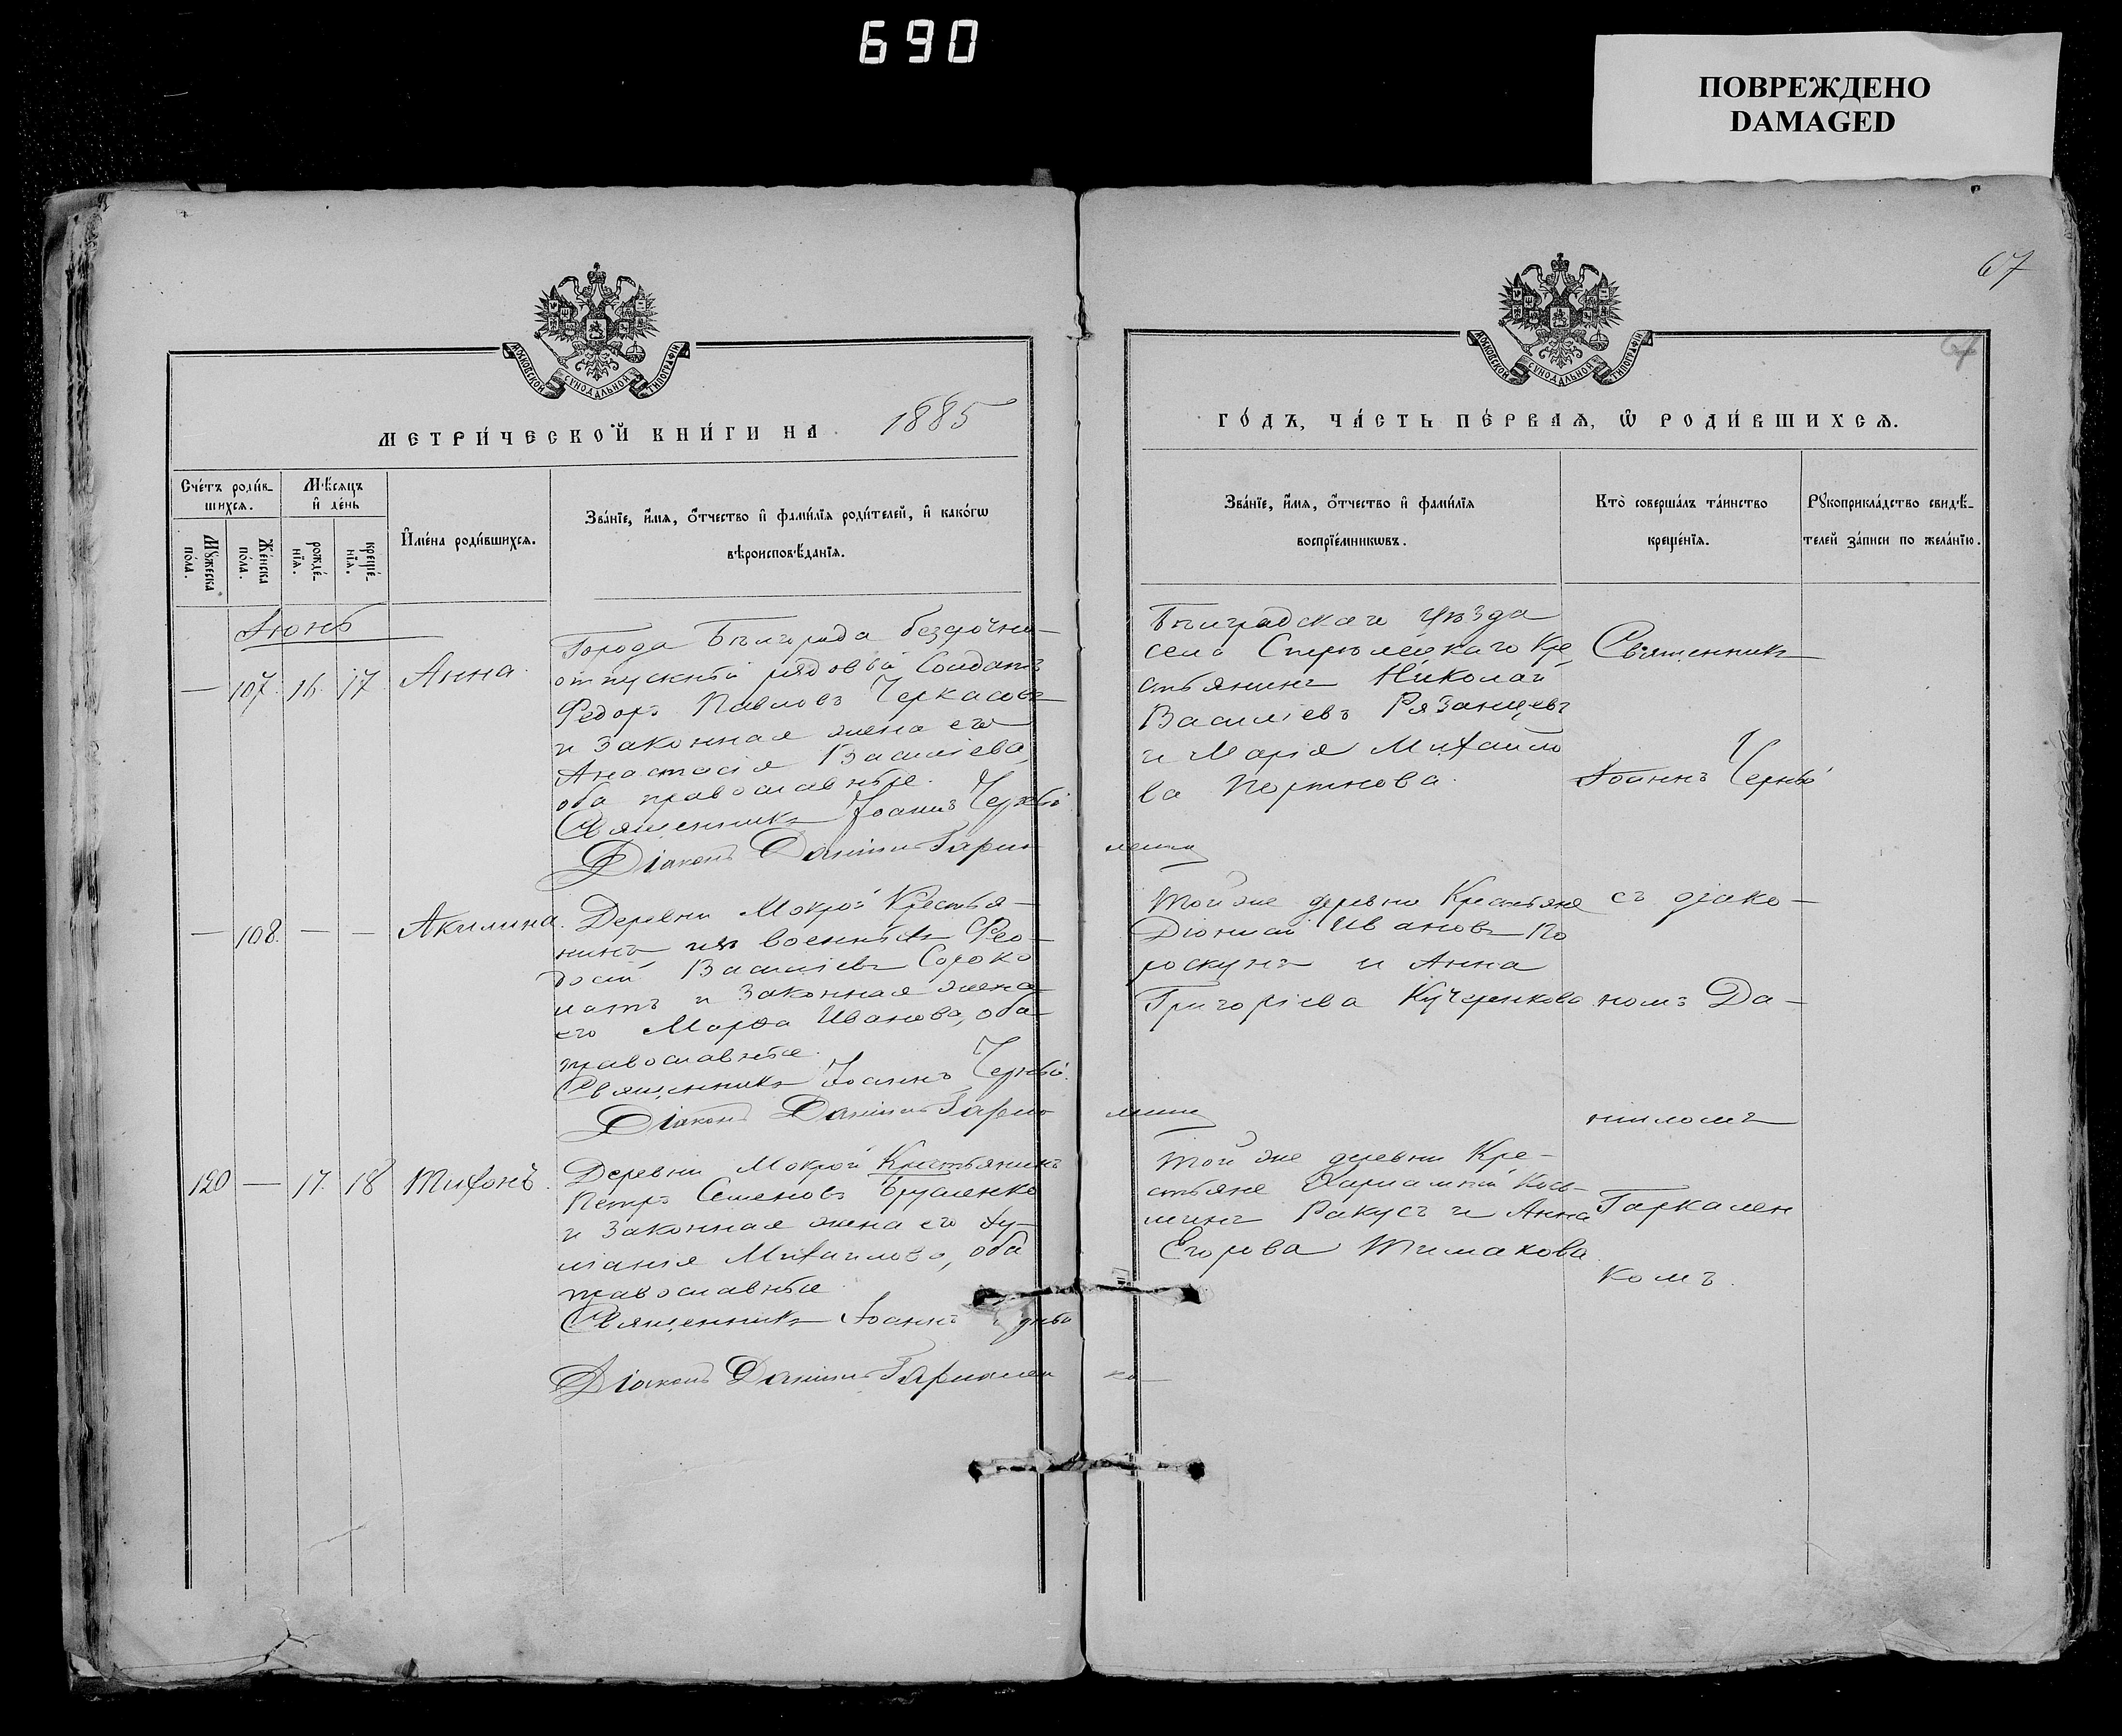 690
ПОВРЕЖДЕНО
DAMAGED
67
67
МОСКОВСКОЙ СѴНОДАЛЬНОЙ ТИПОГРАФІИ
МОСКОВСКОЙ СѴНОДАЛЬНОЙ ТИПОГРАФІИ
МЕТРИ́ЧЕСКОЙ КНИ́ГИ НА 1885
ГО́ДЪ, ЧА́СТЬ ПЕ́РВАѦ, Ѡ РОДИ́ВШИХСѦ.
Сче́тъ роди́в-
шихсѧ.
Мꙋ́жеска по́ла.
Же́нска по́ла.
Мѣ́сѧцъ
и҆ де́нь
рожде́-
нїѧ.
креще́-
нїѧ.
И҆мена̀ роди́вшихсѧ.
Зва́нїе, и҆́мѧ, ѻ҆́тчество и҆ фами́лїѧ роди́телей, и҆ како́гѡ
вѣроисповѣ́данїѧ.
Зва́нїе, и҆́мѧ, ѻ҆́тчество и҆ фами́лїѧ
воспрїе́мникѡвъ.
Кто̀ соверша́лъ та́инство
креще́нїѧ.
Рꙋкоприкла́дство свидѣ́-
телей за́писи по жела́нїю.
Іюнь
— 107. 16. 17. Анна.
Города Бѣлгорода безсрочно-
отпускный рядовый Солдатъ
Федоръ Павловъ Черкасовъ
и законная жена его
Анастасія Васильева,
оба православные.
Священникъ Іоаннъ Черный
Діаконъ Даніилъ Гарка
ленко
Бѣлградскаго уѣзда
села Стрѣлецкаго Кре
стьянинъ Николай
Васильевъ Рязанцевъ
и Марія Михайло
ва Портнова.
Священникъ
Іоаннъ Черный
— 108. — — Акилина.
Деревни Мокрой Крестья-
нинъ изъ военныхъ Фео-
досій Васильевъ Сороко
латъ и законная жена
его Марѳа Иванова, оба
православные.
Священникъ Іоаннъ Черный.
Діаконъ Даніилъ Гарка
ленко
Той же деревни Крестьяне
Діонисій Ивановъ По
роскунъ и Анна
Григорьева Кучеренкова
съ діако-
номъ Да-
ніиломъ
120 — 17. 18 Тихонъ.
Деревни Мокрой Крестьянинъ
Петръ Семеновъ Брусленко
и законная жена его Іу-
ліанія Михаилова, оба
православные.
Священникъ Іоаннъ
Діаконъ Даніилъ Гаркален
ко
Той же деревни Кре-
стьяне Харлампій Кось-
минъ Ракусъ и Анна
Егорова Тимакова.
Гаркален
комъ.